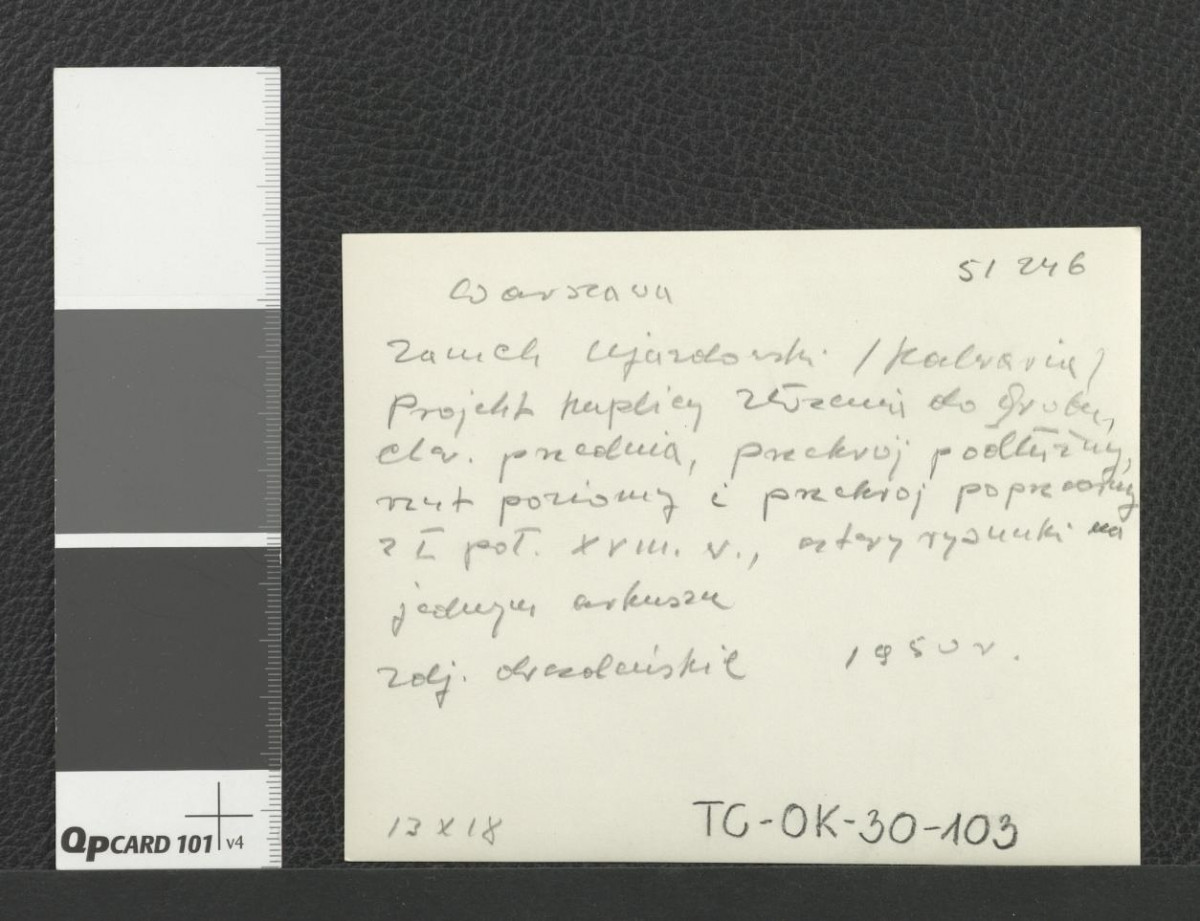 51246
Warszawa
Zamek Ujazdowski /Kalwaria/
Projekt kaplicy Złożenia do Grobu,
elew. przednia, przekrój podłużny,
rzut poziomy i przekrój poprzeczny
z I poł. XVIII. w., cztery rysunki na
jednym arkuszu
zdj. drezdeńskie 1950 r.
13 x 18
TC-OK-30-103
QPCARD 101 v4